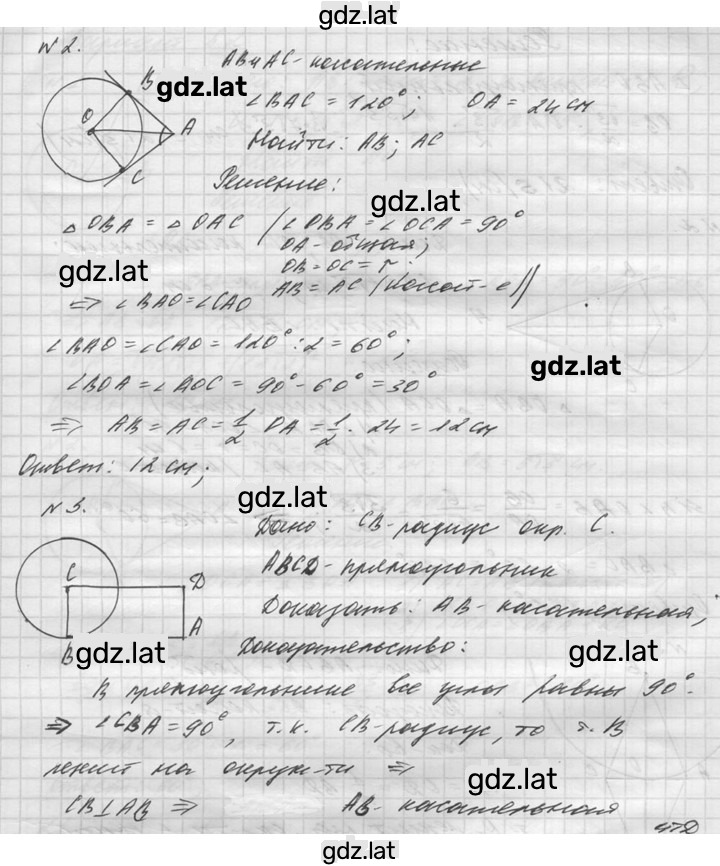 gdz.lat
N 2.
AB и AC - касательные
gdz.lat
∠BAC = 120°; OA = 24 см
Найти: AB; AC
B
O
A
C
Решение:
gdz.lat
△OBA = △OAC /∠OBA = ∠OCA = 90°
OA - общая;
gdz.lat
OB = OC = r
AB = AC (касат-е)/
=> ∠BAO = ∠CAO
∠BAO = ∠CAO = 120° : 2 = 60°;
gdz.lat
∠BOA = ∠AOC = 90° - 60° = 30°
=> AB = AC = 1/2 OA = 1/2 · 24 = 12 см
Ответ: 12 см;
gdz.lat
N 3.
Дано: CB - радиус окр. C.
ABCD - прямоугольник
C
D
Доказать: AB - касательная;
A
B
gdz.lat
Доказательство:
gdz.lat
В прямоугольнике все углы равны 90°.
=> ∠CBA = 90°, т.к. CB - радиус, то т. B
лежит на окруж-ти =>
gdz.lat
CB⊥AB => AB - касательная
чтд
gdz.lat